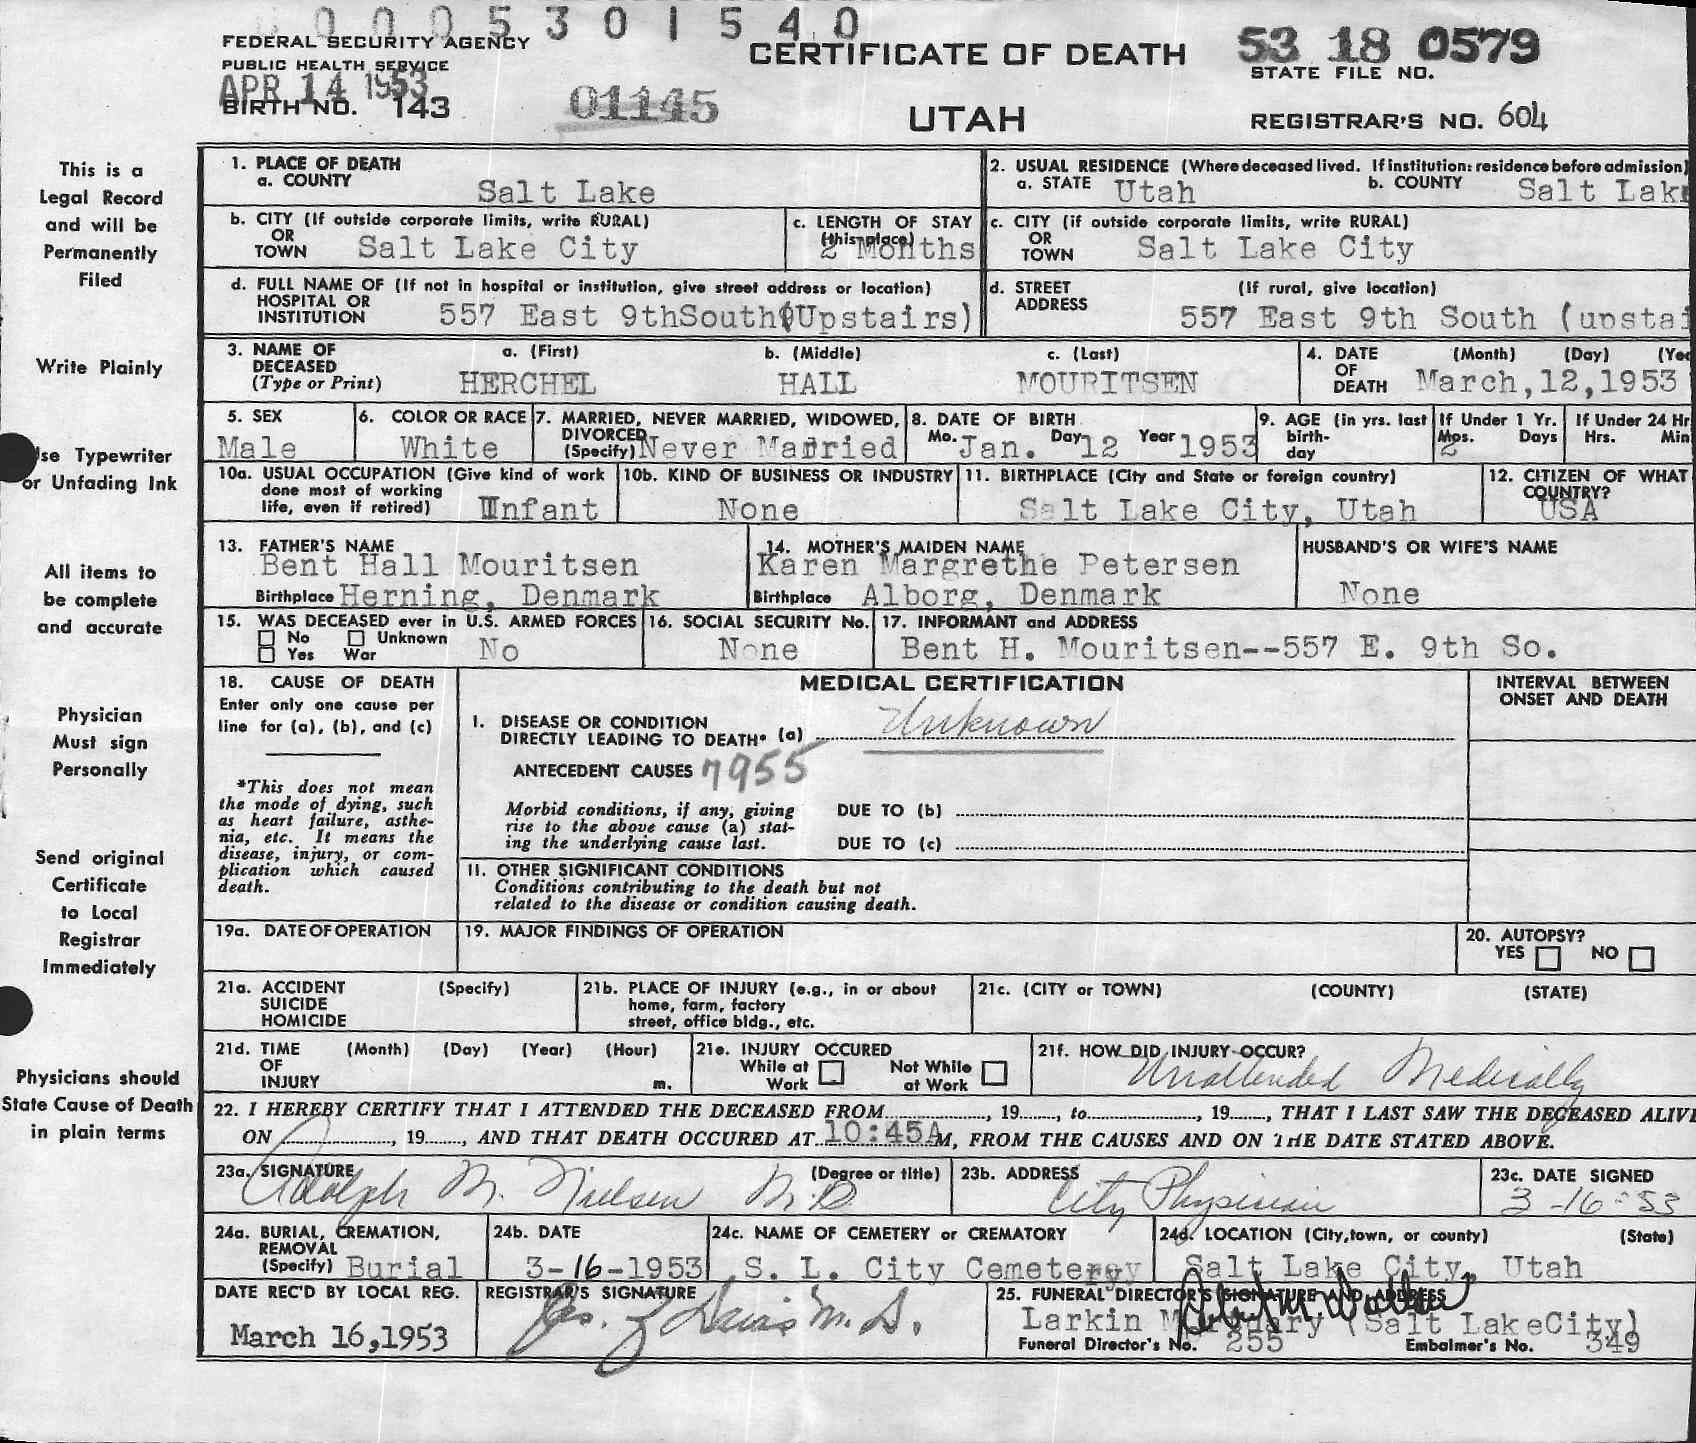 0005301540
FEDERAL SECURITY AGENCY
PUBLIC HEALTH SERVICE
APR 14 1953
BIRTH NO. 143
01145
CERTIFICATE OF DEATH
UTAH
53 18 0579
STATE FILE NO.
REGISTRAR'S NO. 604
This is a
Legal Record
and will be
Permanently
Filed
Write Plainly
Use Typewriter
or Unfading Ink
All items to
be complete
and accurate
Physician
Must sign
Personally
Send original
Certificate
to Local
Registrar
Immediately
Physicians should
State Cause of Death
in plain terms
1. PLACE OF DEATH
a. COUNTY Salt Lake
2. USUAL RESIDENCE (Where deceased lived. If institution: residence before admission)
a. STATE Utah b. COUNTY Salt Lake
b. CITY (If outside corporate limits, write RURAL)
OR
TOWN Salt Lake City
c. LENGTH OF STAY
(this place)
2 Months
c. CITY (if outside corporate limits, write RURAL)
OR
TOWN Salt Lake City
d. FULL NAME OF (If not in hospital or institution, give street address or location)
HOSPITAL OR
INSTITUTION 557 East 9thSouth(Upstairs)
d. STREET (If rural, give location)
ADDRESS 557 East 9th South (upstai
3. NAME OF DECEASED (Type or Print)
a. (First) b. (Middle) c. (Last)
HERCHEL HALL MOURITSEN
4. DATE OF DEATH (Month) (Day) (Yea
March,12,1953
5. SEX
Male
6. COLOR OR RACE
White
7. MARRIED, NEVER MARRIED, WIDOWED,
DIVORCED
(Specify) Never Married
8. DATE OF BIRTH
Mo. Jan. Day 12 Year 1953
9. AGE (in yrs. last
birth-
day
If Under 1 Yr.
Mos. Days
2
If Under 24 Hr
Hrs. Min
10a. USUAL OCCUPATION (Give kind of work
done most of working
life, even if retired) Infant
10b. KIND OF BUSINESS OR INDUSTRY
None
11. BIRTHPLACE (City and State or foreign country)
Salt Lake City, Utah
12. CITIZEN OF WHAT
COUNTRY?
USA
13. FATHER'S NAME
Bent Hall Mouritsen
Birthplace Herning, Denmark
14. MOTHER'S MAIDEN NAME
Karen Margrethe Petersen
Birthplace Alborg, Denmark
HUSBAND'S OR WIFE'S NAME
None
15. WAS DECEASED ever in U.S. ARMED FORCES
No Unknown
Yes War
No
16. SOCIAL SECURITY No.
None
17. INFORMANT and ADDRESS
Bent H. Mouritsen--557 E. 9th So.
18. CAUSE OF DEATH
Enter only one cause per
line for (a), (b), and (c)
*This does not mean
the mode of dying, such
as heart failure, asthe-
nia, etc. It means the
disease, injury, or com-
plication which caused
death.
MEDICAL CERTIFICATION
I. DISEASE OR CONDITION
DIRECTLY LEADING TO DEATH* (a) Unknown
ANTECEDENT CAUSES 7955
Morbid conditions, if any, giving
rise to the above cause (a) stat-
ing the underlying cause last.
DUE TO (b)
DUE TO (c)
11. OTHER SIGNIFICANT CONDITIONS
Conditions contributing to the death but not
related to the disease or condition causing death.
INTERVAL BETWEEN
ONSET AND DEATH
19a. DATE OF OPERATION
19. MAJOR FINDINGS OF OPERATION
20. AUTOPSY?
YES NO
21a. ACCIDENT (Specify)
SUICIDE
HOMICIDE
21b. PLACE OF INJURY (e.g., in or about
home, farm, factory
street, office bldg., etc.
21c. (CITY or TOWN) (COUNTY) (STATE)
21d. TIME (Month) (Day) (Year) (Hour)
OF
INJURY m.
21e. INJURY OCCURED
While at Work Not While at Work
21f. HOW DID INJURY OCCUR?
Unattended Medically
22. I HEREBY CERTIFY THAT I ATTENDED THE DECEASED FROM, 19, to, 19, THAT I LAST SAW THE DECEASED ALIVE
ON, 19, AND THAT DEATH OCCURED AT 10:45A M, FROM THE CAUSES AND ON THE DATE STATED ABOVE.
23a. SIGNATURE (Degree or title)
Adolph M. Nielsen M.D.
23b. ADDRESS
City Physician
23c. DATE SIGNED
3-16-53
24a. BURIAL, CREMATION,
REMOVAL
(Specify) Burial
24b. DATE
3-16-1953
24c. NAME OF CEMETERY or CREMATORY
S. L. City Cemetery
24d. LOCATION (City, town, or county) (State)
Salt Lake City, Utah
DATE REC'D BY LOCAL REG.
March 16,1953
REGISTRAR'S SIGNATURE
Jas. Z Davis M.D.
25. FUNERAL DIRECTOR'S (SIGNATURE AND ADDRESS
Larkin Mortuary (Salt LakeCity)
Funeral Director's No. 255 Embalmer's No. 349